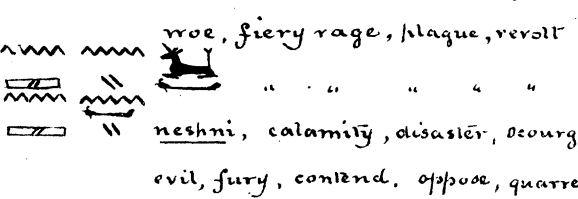 woe, fiery rage, plague, revolt
" " " " "
neshni, calamity, disaster, scourg
evil, fury, contend, oppose, quarre